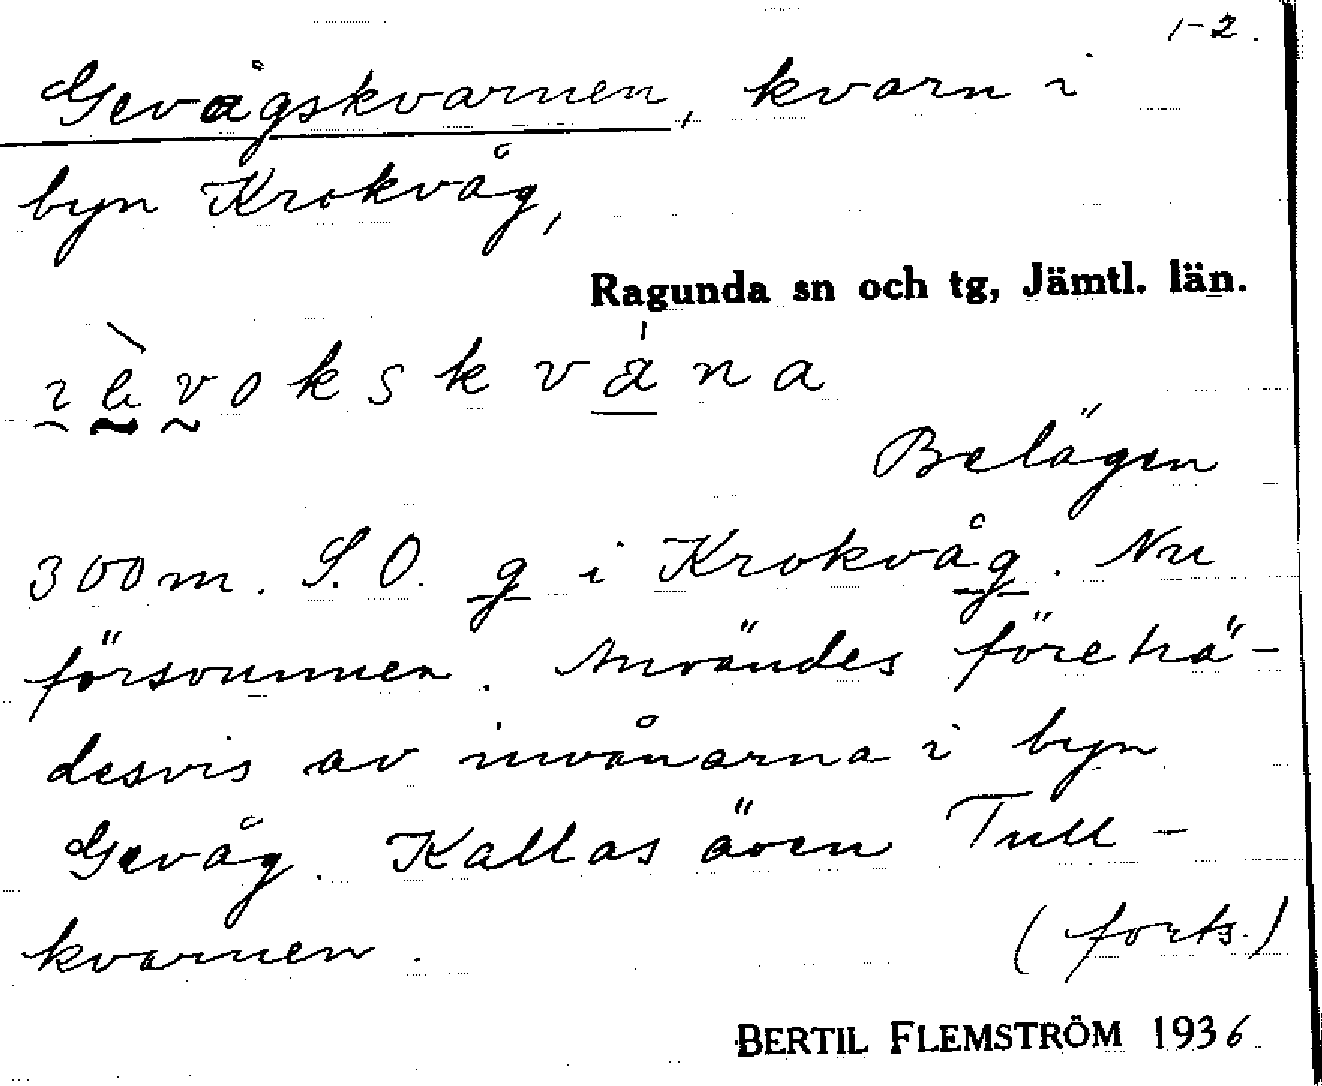 1-2.
Gevågskvarnen, kvarn i
byn Krokvåg,
Ragunda sn och tg, Jämtl. län.
Belägen
300 m. S.O. g i Krokvåg. Nu
försvunnen. Användes företrä-
desvis av invånarna i byn
Gevåg. Kallas även Tull-
kvarnen.
(forts.)
BERTIL FLEMSTRÖM 1936